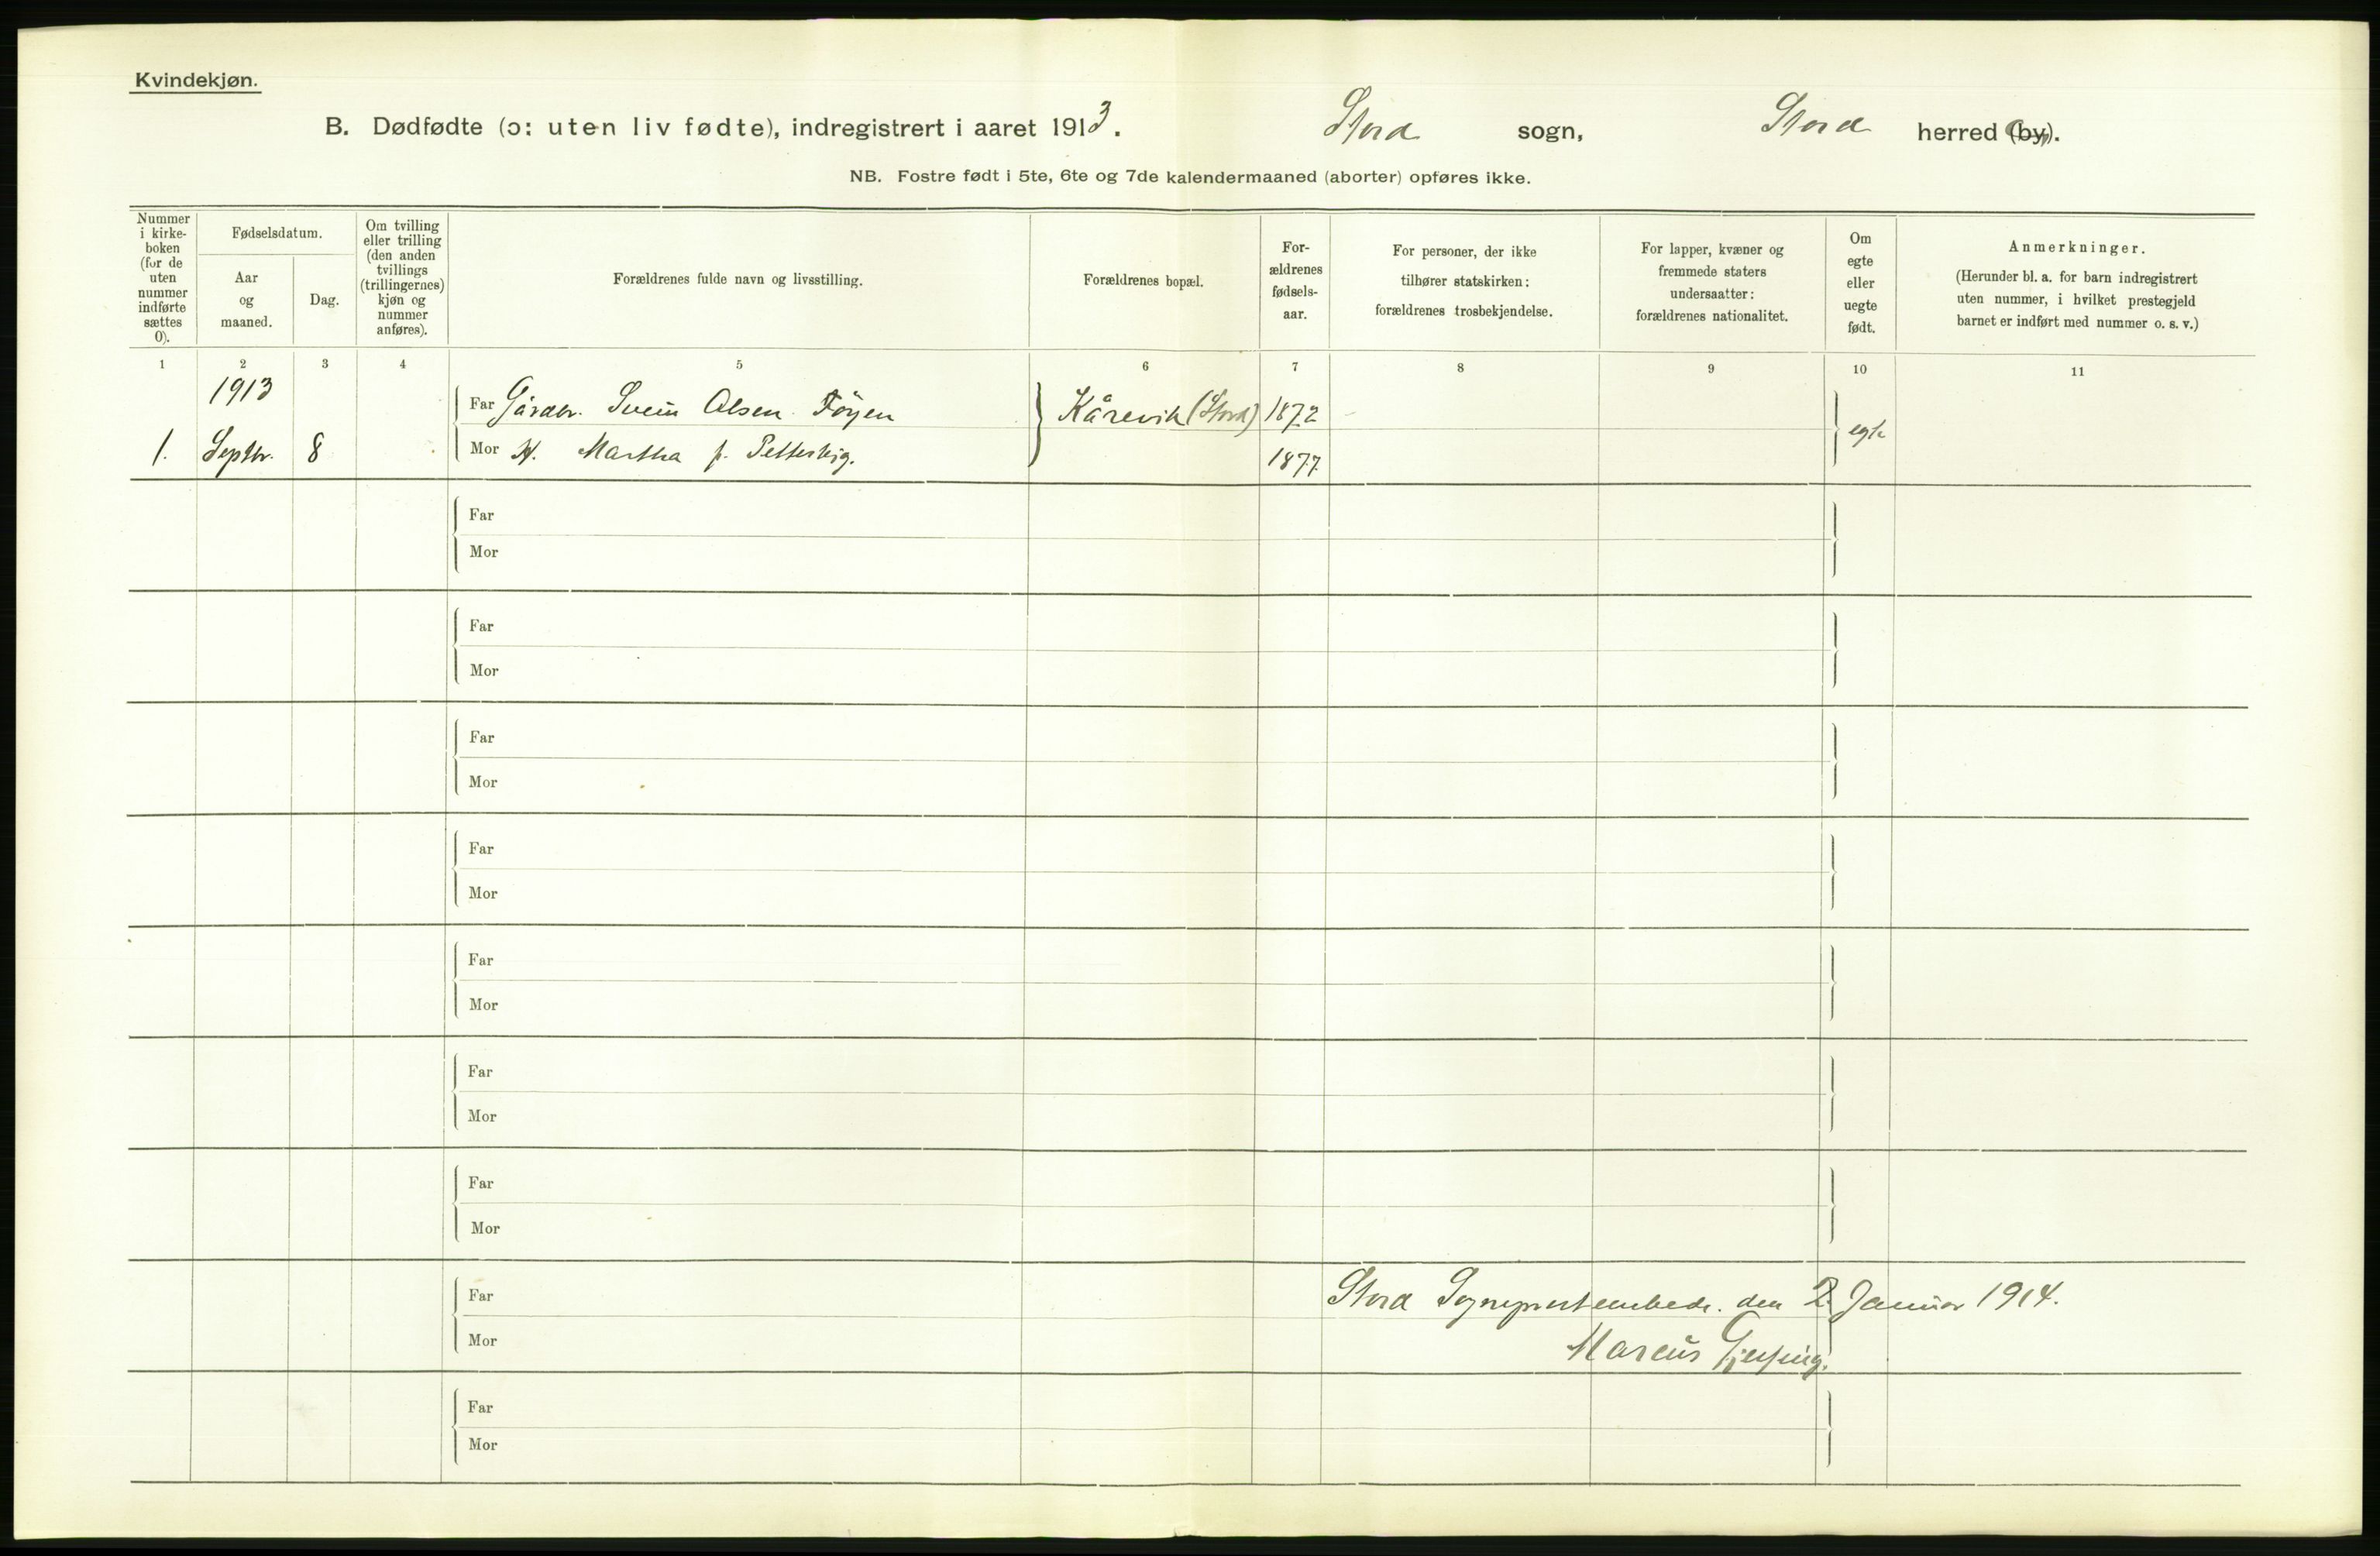 Kvindekjøn.
B. Dødfødte (ɔ: uten liv fødte), indregistrert i aaret 1913. Stord sogn, Stord herred (by).
NB. Fostre født i 5te, 6te og 7de kalendermaaned (aborter) opføres ikke.
Nummer
i kirke-
boken
(for de
uten
nummer
indførte
sættes
0).
Fødselsdatum.
Aar
og
maaned.
Dag.
Om tvilling
eller trilling
(den anden
tvillings
(trillingernes)
kjøn og
nummer
anføres).
Forældrenes fulde navn og livsstilling.
Forældrenes bopæl.
For-
ældrenes
fødsels-
aar.
For personer, der ikke
tilhører statskirken:
forældrenes trosbekjendelse.
For lapper, kvæner og
fremmede staters
undersaatter:
forældrenes nationalitet.
Om
egte
eller
uegte
født.
Anmerkninger.
(Herunder bl. a. for barn indregistrert
uten nummer, i hvilket prestegjeld
barnet er indført med nummer o. s. v.)
1 2 3 4 5 6 7 8 9 10 11
1913
Far Gårdbr. Svein Olsen Föyen Kårevik (Stord) 1872
1. Septbr. 8 Mor H. Martha f. 1877. egte
Far
Mor
Far
Mor
Far
Mor
Far
Mor
Far
Mor
Far
Mor
Far
Mor
Far Stord Sogneprestembede. den 2. Januar 1914.
Mor Marcus Gjessing.
Far
Mor